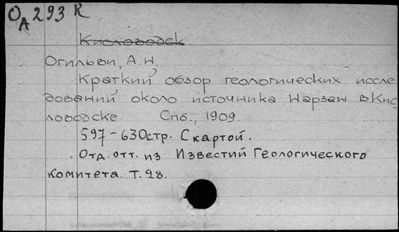 ОА 293 К
Кисловодск
Огильви, А.Н.
Краткий обзор геологических иссле
дований около источника Нарзан в Кис
ловодске. Спб., 1909
597-630стр. С картой.
Отд. отт. из Известий Геологического
комитета. Т. 28.